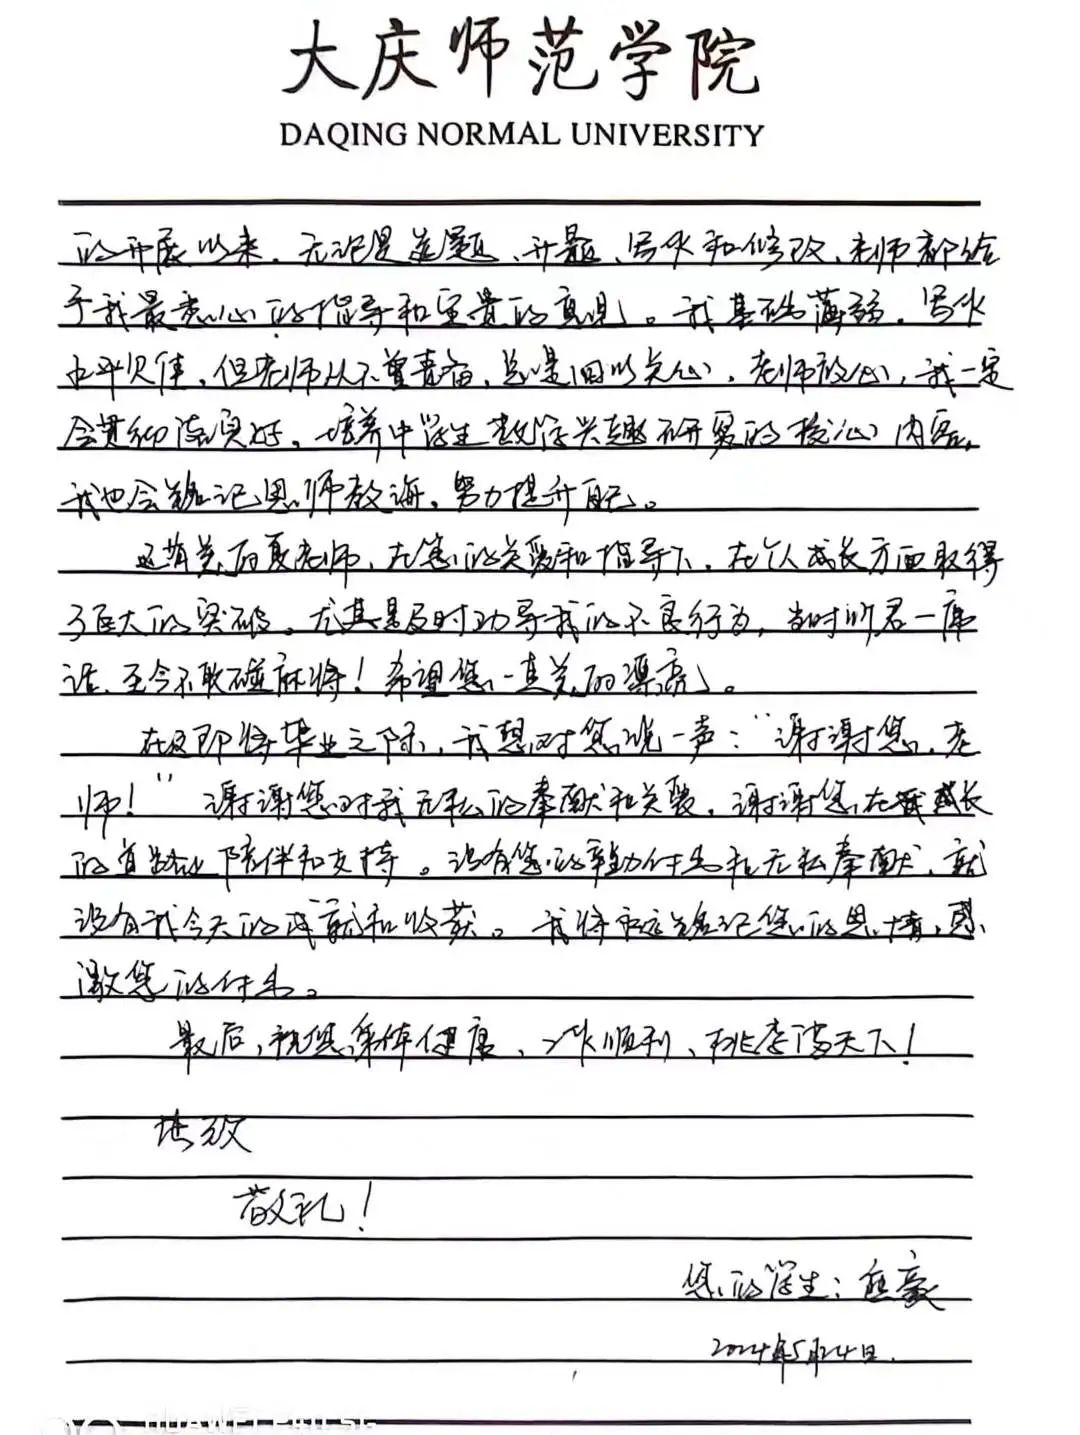 大庆师范学院
DAQING NORMAL UNIVERSITY
的开展以来，无论是选题、开题、写作和修改，老师都给
予我最悉心的指导和宝贵的意见。我基础薄弱，写作
水平欠佳，但老师从不曾责备，总是回以关心，老师放心，我一定
会贯彻落实好，培养中学生数学兴趣研究的核心内容，
我也会铭记恩师教诲，努力提升自己。
这苗美丽夏老师，在您的关爱和指导下，在个人成长方面取得
了巨大的突破。尤其是及时劝导我的不良行为，当时听君一席
话，至今不敢碰麻将！希望您一直美丽漂亮。
在这即将毕业之际，我想对您说一声：“谢谢您，老
师！”谢谢您对我无私的奉献和关爱，谢谢您在我成长
的道路上陪伴和支持。没有您的辛勤付出和无私奉献，就
没有我今天的成就和收获。我将永远铭记您的恩情，感
激您的付出。
最后，祝您身体健康，工作顺利，桃李满天下！
此致
敬礼！
您的学生：熊豪
2024年5月24日.